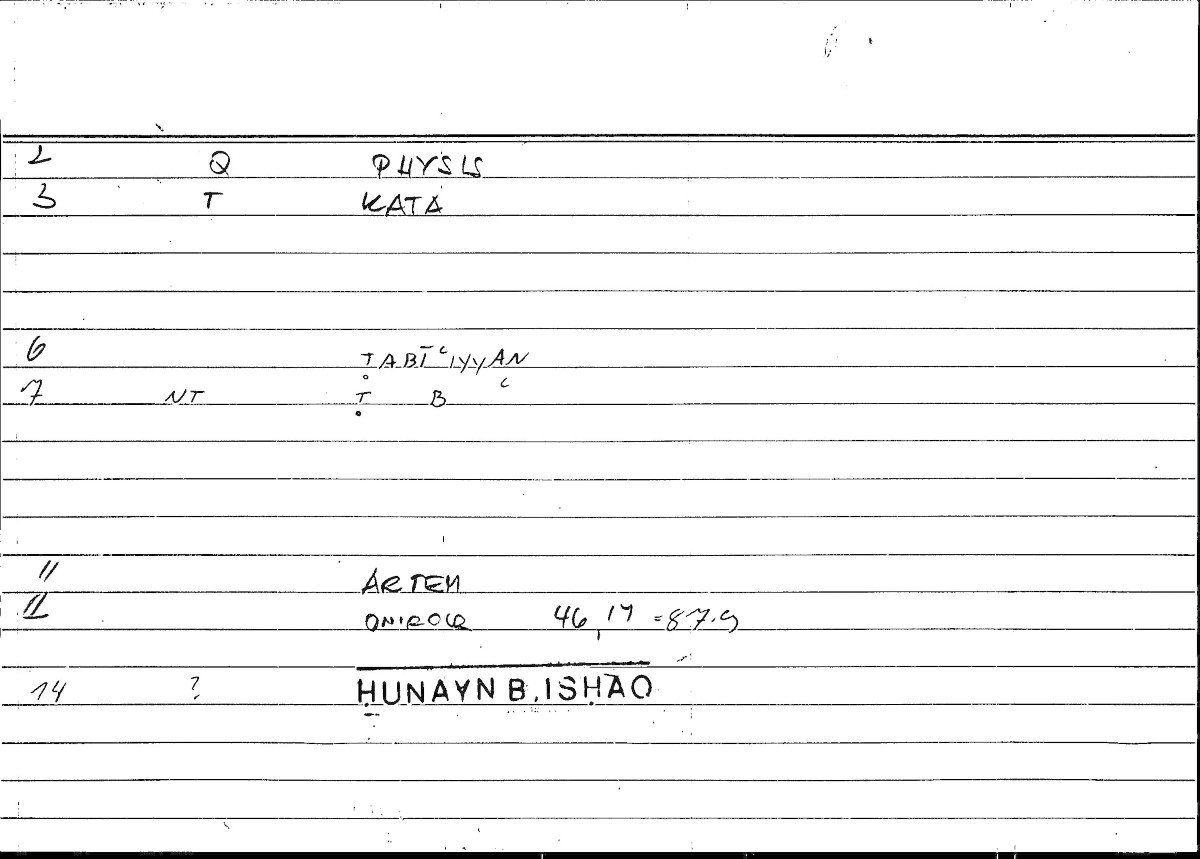 2 Q PHYSIS
3 T KATA
6 ṬABĪʿIYYAN
7 NT Ṭ B ʿ
11 ARTEM
12 ONIROCR 46,17 = 87.9
14 ? ḤUNAYN B. ISḤĀQ